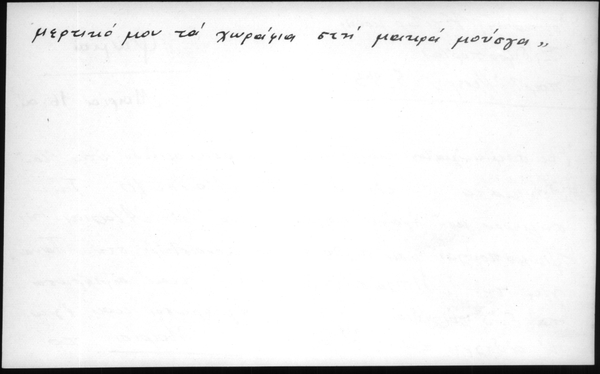 μερτικό μου τά χωράφια στή μακρά μούσγα „